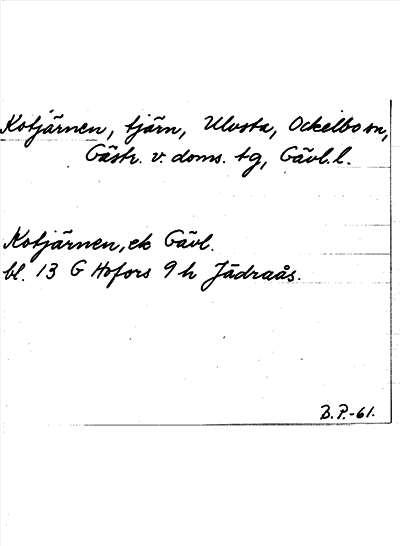 Kotjärnen, tjärn, Ulvsta, Ockelbo sn,
Gästr. v. doms. tg, Gävl. l.
Kotjärnen, ek Gävl.
bl. 13 G Hofors 9 h Jädraås.
B.P.-61.